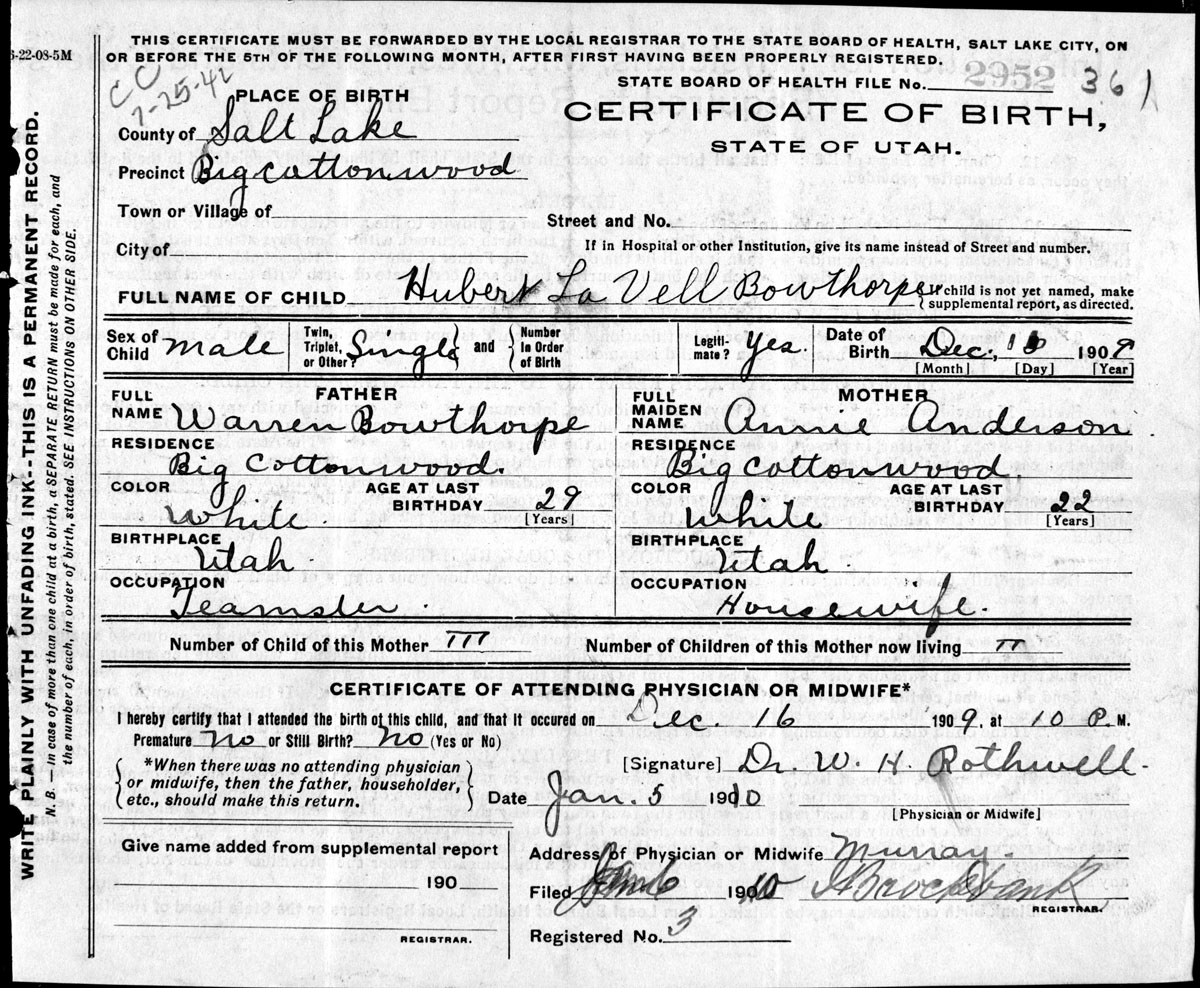 THIS CERTIFICATE MUST BE FORWARDED BY THE LOCAL REGISTRAR TO THE STATE BOARD OF HEALTH, SALT LAKE CITY, ON
6-22-08-5M
OR BEFORE THE 5TH OF THE FOLLOWING MONTH, AFTER FIRST HAVING BEEN PROPERLY REGISTERED.
CC
7-25-42
STATE BOARD OF HEALTH FILE No. 2952 361
PLACE OF BIRTH
CERTIFICATE OF BIRTH,
STATE OF UTAH.
County of Salt Lake
Precinct Big Cottonwood
Town or Village of
Street and No.
City of
If in Hospital or other Institution, give its name instead of Street and number.
FULL NAME OF CHILD Hubert La Vell Bowthorpe
If child is not yet named, make
supplemental report, as directed.
Sex of Child Male
Twin, Triplet, or Other? Single and Number in Order of Birth
Legiti-mate? Yes.
Date of Birth Dec. 16 1909
[Month] [Day] [Year]
FATHER
FULL NAME Warren Bowthorpe
RESIDENCE
Big Cottonwood.
COLOR White.
AGE AT LAST BIRTHDAY 29
[Years]
BIRTHPLACE
Utah.
OCCUPATION
Teamster.
MOTHER
FULL MAIDEN NAME Annie Anderson
RESIDENCE
Big Cottonwood
COLOR White
AGE AT LAST BIRTHDAY 22
[Years]
BIRTHPLACE
Utah.
OCCUPATION
Housewife.
Number of Child of this Mother III
Number of Children of this Mother now living II
CERTIFICATE OF ATTENDING PHYSICIAN OR MIDWIFE*
I hereby certify that I attended the birth of this child, and that it occured on Dec. 16 1909. at 10 P. M.
Premature No or Still Birth? No (Yes or No)
*When there was no attending physician
or midwife, then the father, householder,
etc., should make this return.
[Signature] Dr. W. H. Rothwell.
Date Jan. 5 1910
[Physician or Midwife]
Give name added from supplemental report
190
REGISTRAR.
Address of Physician or Midwife Murray.
Filed 1910 Brockbank
REGISTRAR.
Registered No. 3
WRITE PLAINLY WITH UNFADING INK--THIS IS A PERMANENT RECORD.
N. B.— In case of more than one child at a birth, a SEPARATE RETURN must be made for each, and
the number of each, in order of birth, stated. SEE INSTRUCTIONS ON OTHER SIDE.